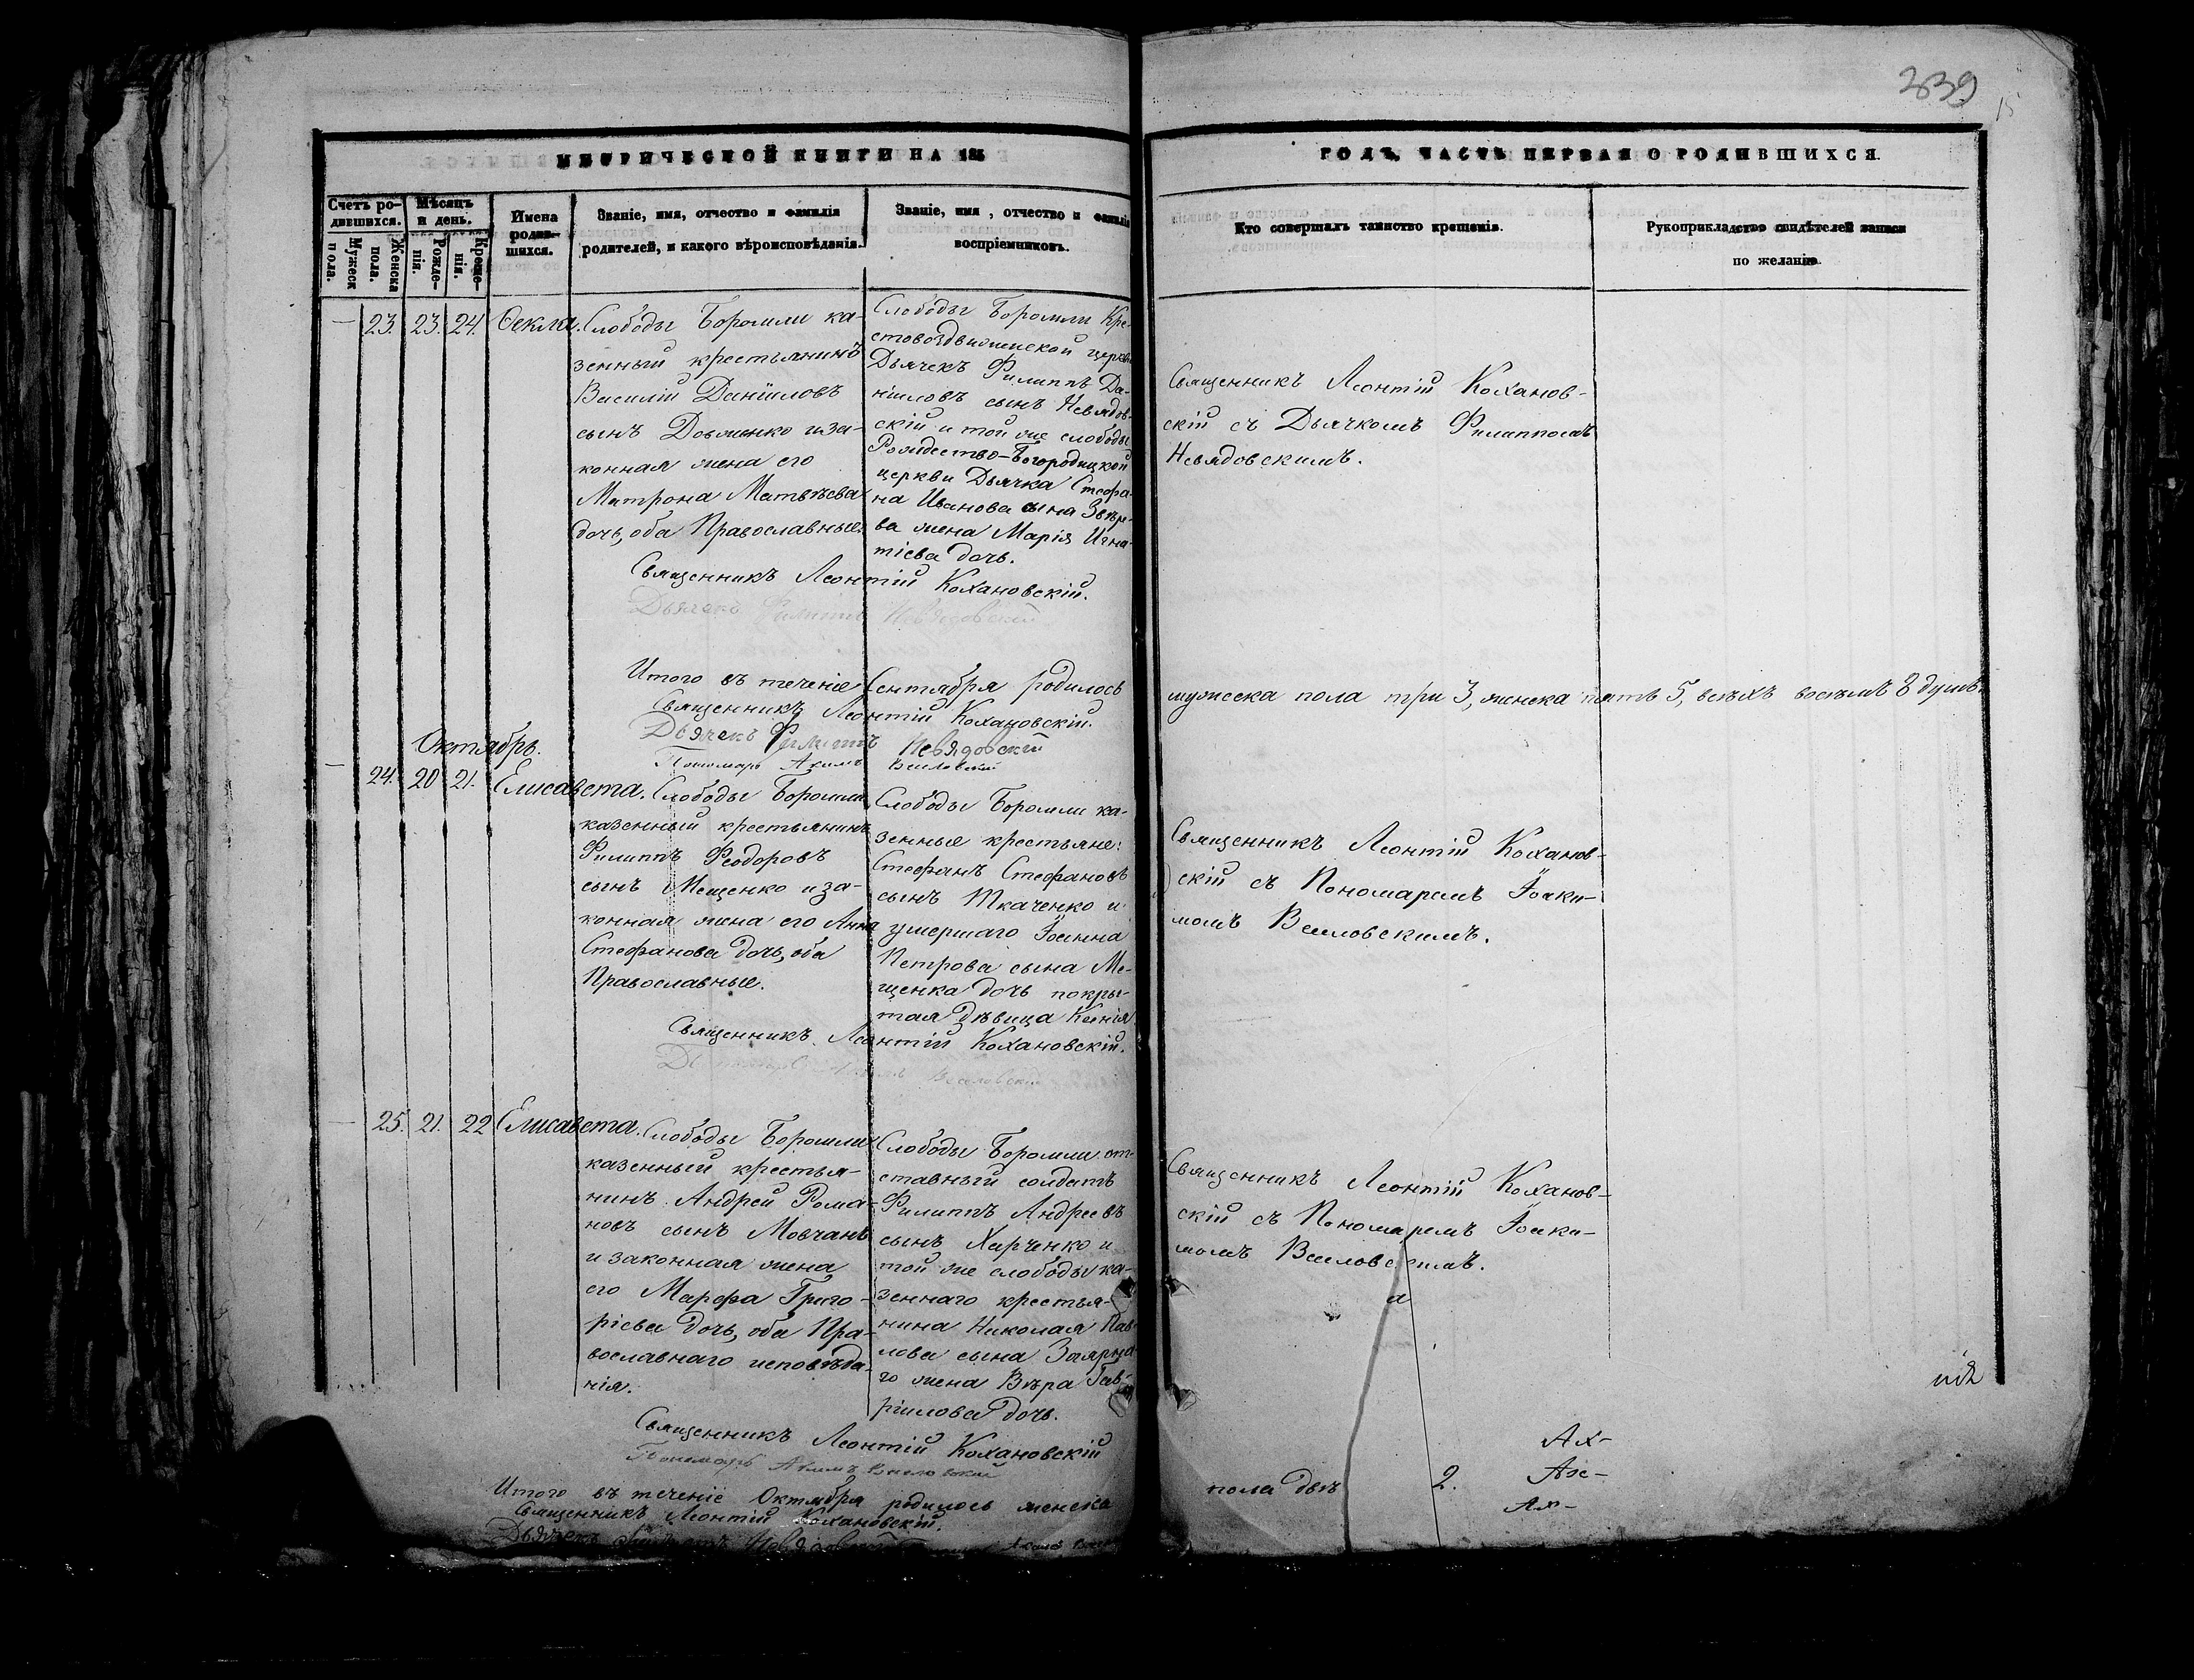 239
15
МЕТРИЧЕСКОЙ КНИГИ НА 185
ГОДЪ, ЧАСТЬ ПЕРВАЯ О РОДИВШИХСЯ.
Счетъ ро-
дившихся.
Мужеск
пола.
Женска
пола.
Мѣсяцъ
и день.
Рожде-
нія.
Креще-
нія.
Имена
родив-
шихся.
Званіе, имя, отчество и фамилія
родителей, и какого вѣроисповѣданія.
Званіе, имя, отчество и фамилія
воспріемниковъ.
Кто совершалъ таинство крещенія.
Рукоприкладство свидѣтелей записи
по желанію.
— 23. 23. 24. Ѳекла.
Слободы Боромли ка-
зенный крестьянинъ
Василій Даніиловъ
сынъ Довженко и за-
конная жена его
Матрона Матвѣева
дочь, оба Православные.
Слободы Боромли Кре-
стовоздвиженской церкви
Дьячекъ Филиппъ Да-
ніиловъ сынъ Невядов-
скій и той же слободы
Рождество-Богородицкой
церкви Дьячка Стефа-
на Иванова сына Звѣре-
ва жена Марія Игна-
тіева дочь.
Священникъ Леонтій Коханов-
скій съ Дьячкомъ Филиппомъ
Невядовскимъ.
Священникъ Леонтій Кохановскій.
Дьячекъ Филиппъ Невядовскій
Итого въ теченіе Сентября родилось
мужеска пола три 3, женска пять 5, всѣхъ восѣмъ 8 душъ.
Священникъ Леонтій Кохановскій.
Дьячекъ Филиппъ Невядовскій
Пономарь Акимъ Веселовскій
Октябрь.
— 24. 20 21. Елисавета.
Слободы Боромли
казенный крестьянинъ
Филиппъ Феодоровъ
сынъ Мещенко и за-
конная жена его Анна
Стефанова дочь, оба
Православные.
Слободы Боромли ка-
зенные крестьяне:
Стефанъ Стефановъ
сынъ Ткаченко и
умершаго Іоанна
Петрова сына Ме-
щенка дочь покры-
тая дѣвица Ксенія
Священникъ Леонтій Коханов-
скій съ Пономаремъ Іоаки-
момъ Веселовскимъ.
Священникъ Леонтій Кохановскій.
Веселовскій
— 25. 21. 22 Елисавета.
Слободы Боромли
казенный крестья-
нинъ Андрей Рома-
новъ сынъ Мовчанъ
и законная жена
его Марфа Григо-
ріева дочь, оба Пра-
вославнаго исповѣда-
нія.
Слободы Боромли от-
ставный солдатъ
Филиппъ Андреевъ
сынъ Харченко и
той же слободы ка-
зеннаго крестья-
нина Николая Пав-
лова сына Заярна-
го жена Вѣра Гав-
ріилова дочь.
Священникъ Леонтій Коханов-
скій съ Пономаремъ Іоаки-
момъ Веселовскимъ.
Священникъ Леонтій Кохановскій
Пономарь Акимъ Веселовскій
Итого въ теченіе Октября родилось женска
пола двѣ 2.
Священникъ Леонтій Кохановскій.
Дьячекъ Филиппъ Невядовскій